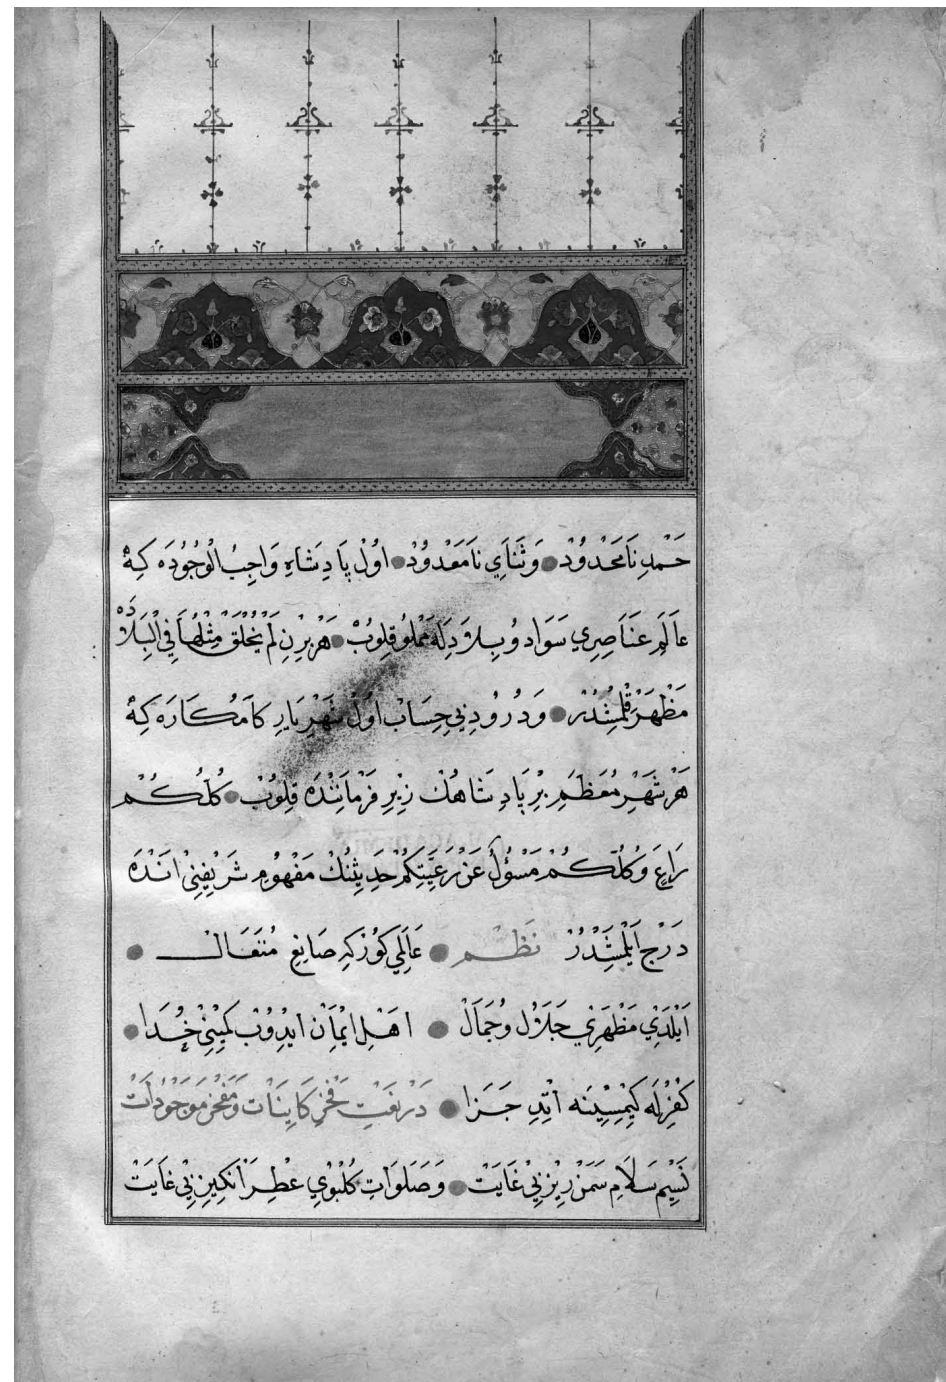 حَمْدِ نَامَحْدُودْ ● وَثَنَايِ نَامَعْدُودْ ● اوُلْ پَادِشَاهِ وَاجِبُ الْوُجُودَه كِهْ
عَالَمِ عَنَاصِرِي سَوَاد وُبِلَادِلَه مَمْلُو قِلوُبْ ● هَرْ بِرْنِ لَمْ يُخْلَقْ مِثْلُهَا فِي الْبِلَادْ
مَظْهَرْ قِلْمِشْدُرْ ● وَدُرُودِ بِي حِسَابْ اوُلْ شَهْرِيَارِ كَامْكَارَه كِهْ
هَرْ شَهْرِ مُعَظَّمِ بِرْ پَادِشَاهُنْ زِيْرِ فَرْمَانِنْدَه قِلوُبْ ● كُلُّكُمْ
رَاعٍ وَكُلُّكُمْ مَسْؤُلٌ عَنْ رَعِيَّتِكُمْ حَدِيثِنُكْ مَفْهُومِ شَرِيفِنِي انَدْه
دَرْج اَيْلَمِشْدُرْ نَظْم ● عَالَمِي كوُرْكِه صَانِعِ مُتَعَالْ ●
اَيْلَدِي مَظْهَرِي جَلَالْ وُجَمَالْ ● اهَلِ ايْمَانْ ايدُوبْ كِمِينِي خُدَا ●
كُفْرِلَه كِيْمِسِينَه اتِّدِ جَزَا ● دَرْ نَعْتِ فَخْرِ كَايِنَاتْ وَمَفْخَرِ مَوْجُودَاتْ
نَسِيْمِ سَلَامِ سَمَنْ رِيْزِ بِي غَايَتْ ● وَصَلَوَاتِ كُلْبوُيِ عِطْرْ اَنْكِيزِ بِي غَايَتْ